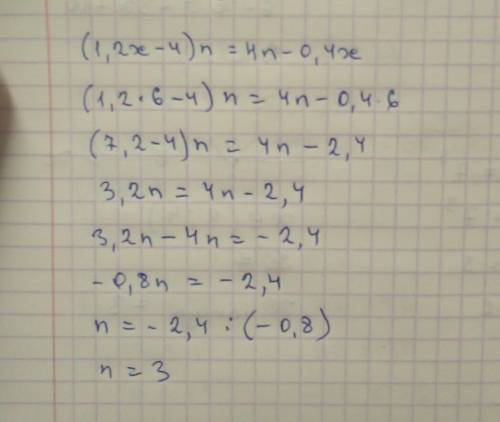 (1,2x-4)n=4n-0,4x
(1,2·6-4)n=4n-0,4·6
(7,2-4)n=4n-2,4
3,2n=4n-2,4
3,2n-4n=-2,4
-0,8n=-2,4
n=-2,4:(-0,8)
n=3